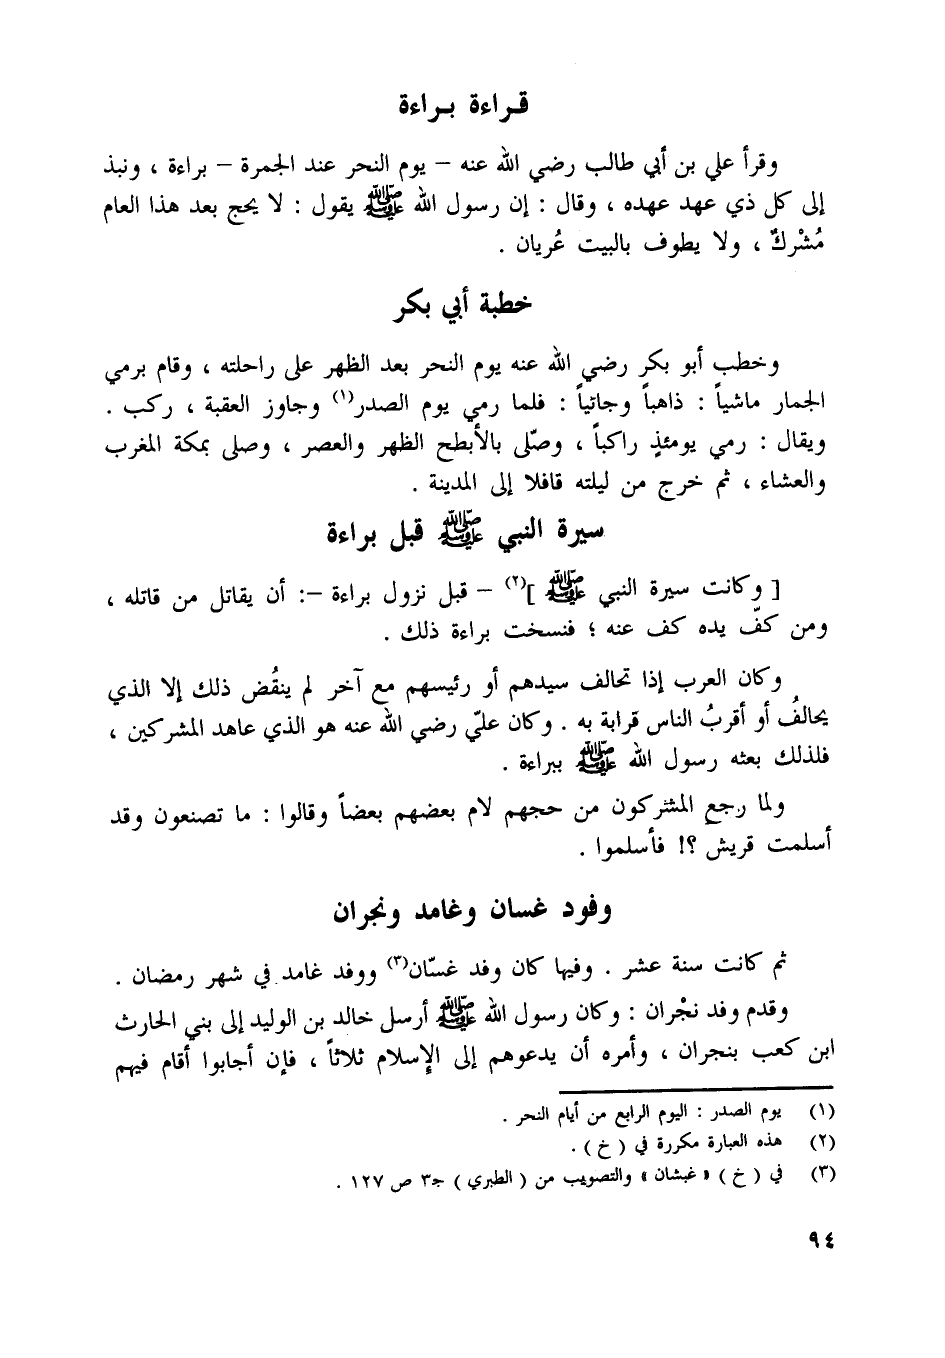 قراءة براءة
وقرأ علي بن أبي طالب رضي الله عنه – يوم النحر عند الجمرة – براءة ، ونبذ
إلى كل ذي عهد عهده ، وقال : إن رسول الله ﷺ يقول : لا يحج بعد هذا العام
مُشْركٌ ، ولا يطوف بالبيت عُريان .
خطبة أبي بكر
وخطب أبو بكر رضي الله عنه يوم النحر بعد الظهر على راحلته ، وقام برمي
الجمار ماشياً : ذاهباً وجاثياً : فلما رمي يوم الصدر(١) وجاوز العقبة ، ركب .
ويقال : رمي يومئذٍ راكباً ، وصلّى بالأبطح الظهر والعصر ، وصلى بمكة المغرب
والعشاء ، ثم خرج من ليلته قافلا إلى المدينة .
سيرة النبي ﷺ قبل براءة
[ وكانت سيرة النبي ﷺ ](٢) – قبل نزول براءة –: أن يقاتل من قاتله ،
ومن كفّ يده كف عنه ؛ فنسخت براءة ذلك .
وكان العرب إذا تحالف سيدهم أو رئيسهم مع آخر لم ينقُض ذلك إلا الذي
يحالفُ أو أقربُ الناس قرابة به . وكان عليّ رضي الله عنه هو الذي عاهد المشركين ،
فلذلك بعثه رسول الله ﷺ ببراءة .
ولما رجع المشركون من حجهم لام بعضهم بعضاً وقالوا : ما تصنعون وقد
أسلمت قريش ؟! فأسلموا .
وفود غسان وغامد ونجران
ثم كانت سنة عشر . وفيها كان وفد غسّان(٣) ووفد غامد في شهر رمضان .
وقدم وفد نجْران : وكان رسول الله ﷺ أرسل خالد بن الوليد إلى بني الحارث
ابن كعب بنجران ، وأمره أن يدعوهم إلى الإسلام ثلاثاً ، فإن أجابوا أقام فيهم
(١) يوم الصدر : اليوم الرابع من أيام النحر .
(٢) هذه العبارة مكررة في ( خ ) .
(٣) في ( خ ) « غبشان » والتصويب من ( الطبري ) جـ٣ ص ١٢٧ .
٩٤